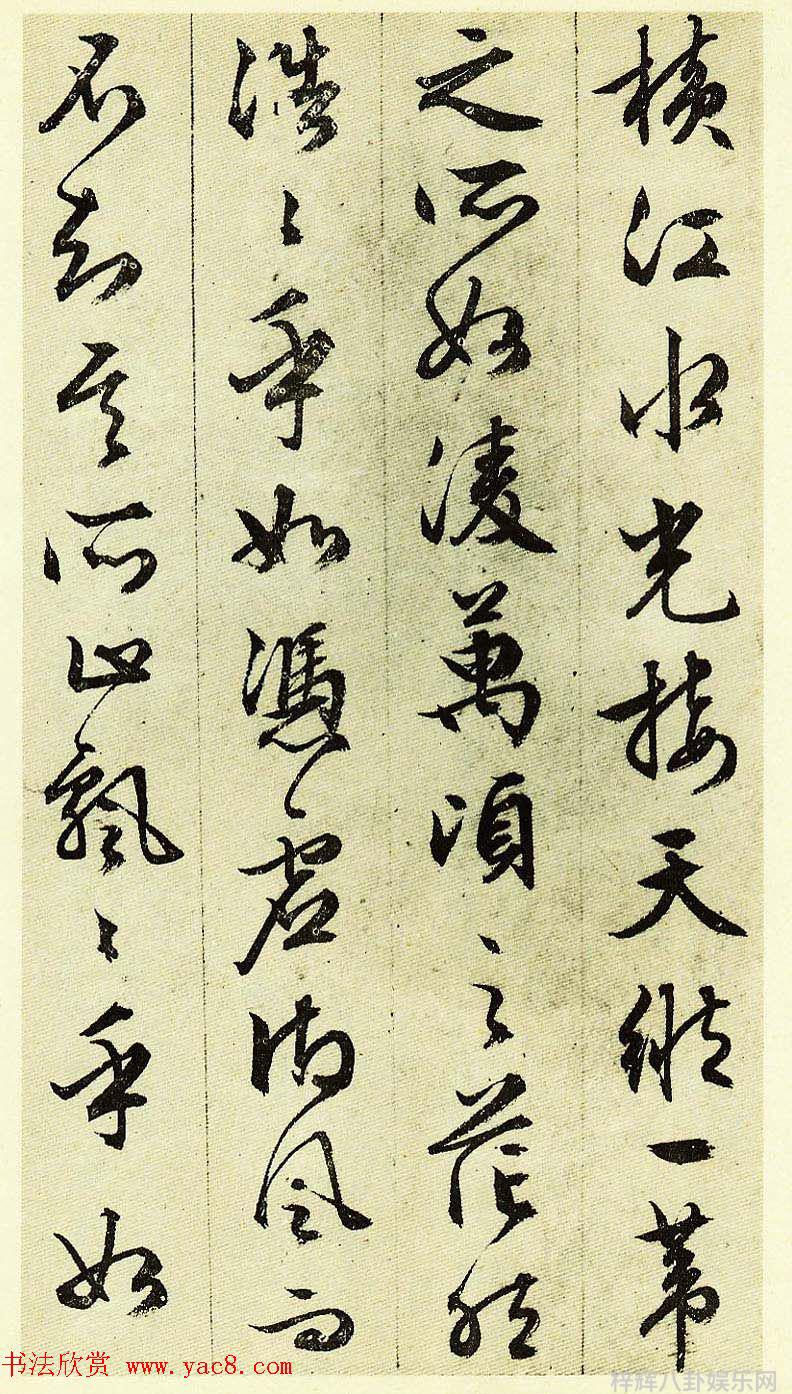 橫江水光接天縱一葦
之所如淩萬頃之茫然
浩〻乎如憑虛御風而
不知其所止飄〻乎如
书法欣赏 www.yac8.com
梓辉八卦娱乐网